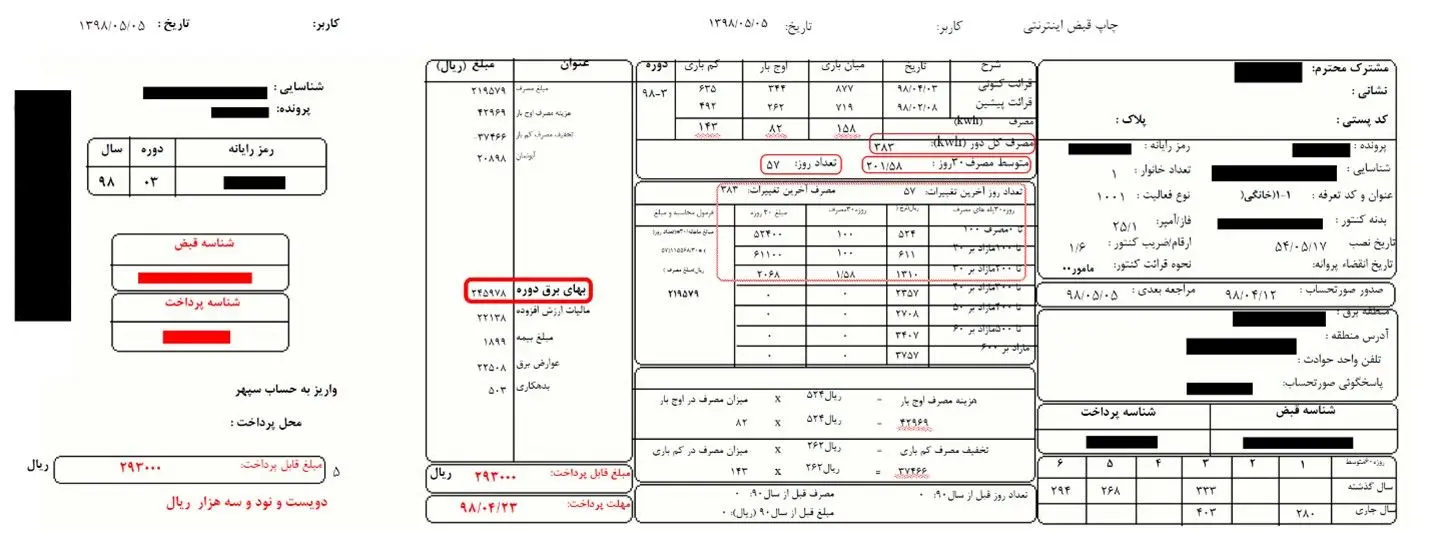 چاپ قبض اینترنتی کاربر: تاریخ: ۱۳۹۸/۰۵/۰۵
مشترک محترم:
نشانی :
کد پستی : پلاک :
پرونده : رمز رایانه :
شناسایی : تعداد خانوار : ۱
عنوان و کد تعرفه : ۱-۱(خانگی( نوع فعالیت : ۱۰۰۱
بدنه کنتور : فاز/آمپر: ۲۵/۱
تاریخ نصب ۵۴/۰۵/۱۷ ارقام/ضریب کنتور : ۱/۶
تاریخ انقضاء پروانه: نحوه قرائت کنتور: مامور۰۰
صدور صورتحساب : ۹۸/۰۴/۱۲ مراجعه بعدی : ۹۸/۰۵/۰۵
منطقه برق :
آدرس منطقه :
تلفن واحد حوادث :
پاسخگوئی صورتحساب:
شناسه قبض شناسه پرداخت
روزه ۶۰متوسط ۱ ۲ ۳ ۴ ۵ ۶
سال گذشته ۳۳۳ ۲۶۸ ۲۹۴
سال جاری ۲۸۰ ۴۰۳
شرح تاریخ میان باری اوج بار کم باری دوره
قرائت کنونی ۹۸/۰۴/۰۳ ۸۷۷ ۳۴۴ ۶۳۵ ۹۸-۳
قرائت پیشین ۹۸/۰۲/۰۸ ۷۱۹ ۲۶۲ ۴۹۲
مصرف (kwh) ۱۵۸ ۸۲ ۱۴۳
مصرف کل دور (kwh): ۳۸۳
متوسط مصرف۳۰روز : ۲۰۱/۵۸ تعداد روز: ۵۷
تعداد روز آخرین تغییرات: ۵۷ مصرف آخرین تغییرات: ۳۸۳
روزه ۳۰پله های مصرف ریال(نرخ) روزه۳۰مصرف مبلغ ۳۰ روزه فرمول محاسبه و مبلغ
تا ۰مصرف ۱۰۰ ۵۲۴ ۱۰۰ ۵۲۴۰۰
تا ۱۰۰مازاد بر ۲۰۰ ۶۱۱ ۱۰۰ ۶۱۱۰۰
تا ۲۰۰مازاد بر ۳۰۰ ۱۳۱۰ ۱/۵۸ ۲۰۶۸
ریال(مبلغ مصرف )
۲۱۹۵۷۹
۲۳۵۷ ۰ ۰
۲۷۰۸ ۰ ۰
۳۴۰۷ ۰ ۰
مازاد بر ۶۰۰ ۳۷۵۷ ۰ ۰
هزینه مصرف اوج بار = ریال۵۲۴ x میزان مصرف در اوج بار
۴۲۹۶۹ = ریال۵۲۴ x ۸۲
تخفیف مصرف کم باری = ریال۲۶۲ x میزان مصرف در کم باری
۳۷۴۶۶ = ریال۲۶۲ x ۱۴۳
تعداد روز قبل از سال۹۰: ۰ مصرف قبل از سال۹۰: ۰
مبلغ قبل از سال۹۰ (ریال): ۰
عنوان مبلغ (ریال)
مبلغ مصرف ۲۱۹۵۷۹
هزینه مصرف اوج بار ۴۲۹۶۹
تخفیف مصرف کم بار ۳۷۴۶۶-
آبونمان ۲۰۸۹۸
بهای برق دوره ۲۴۵۹۷۸
مالیات ارزش افزوده ۲۲۱۳۸
مبلغ بیمه ۱۸۹۹
عوارض برق ۲۲۵۰۸
بدهکاری ۵۰۳
مبلغ قابل پرداخت: ۲۹۳۰۰۰ ریال
مهلت پرداخت: ۹۸/۰۴/۲۳
کاربر: تاریخ : ۱۳۹۸/۰۵/۰۵
شناسایی :
پرونده:
رمز رایانه دوره سال
۰۳ ۹۸
شناسه قبض
شناسه پرداخت
واریز به حساب سپهر
محل پرداخت :
۵ مبلغ قابل پرداخت: ۲۹۳۰۰۰ ریال
دویست و نود و سه هزار ریال